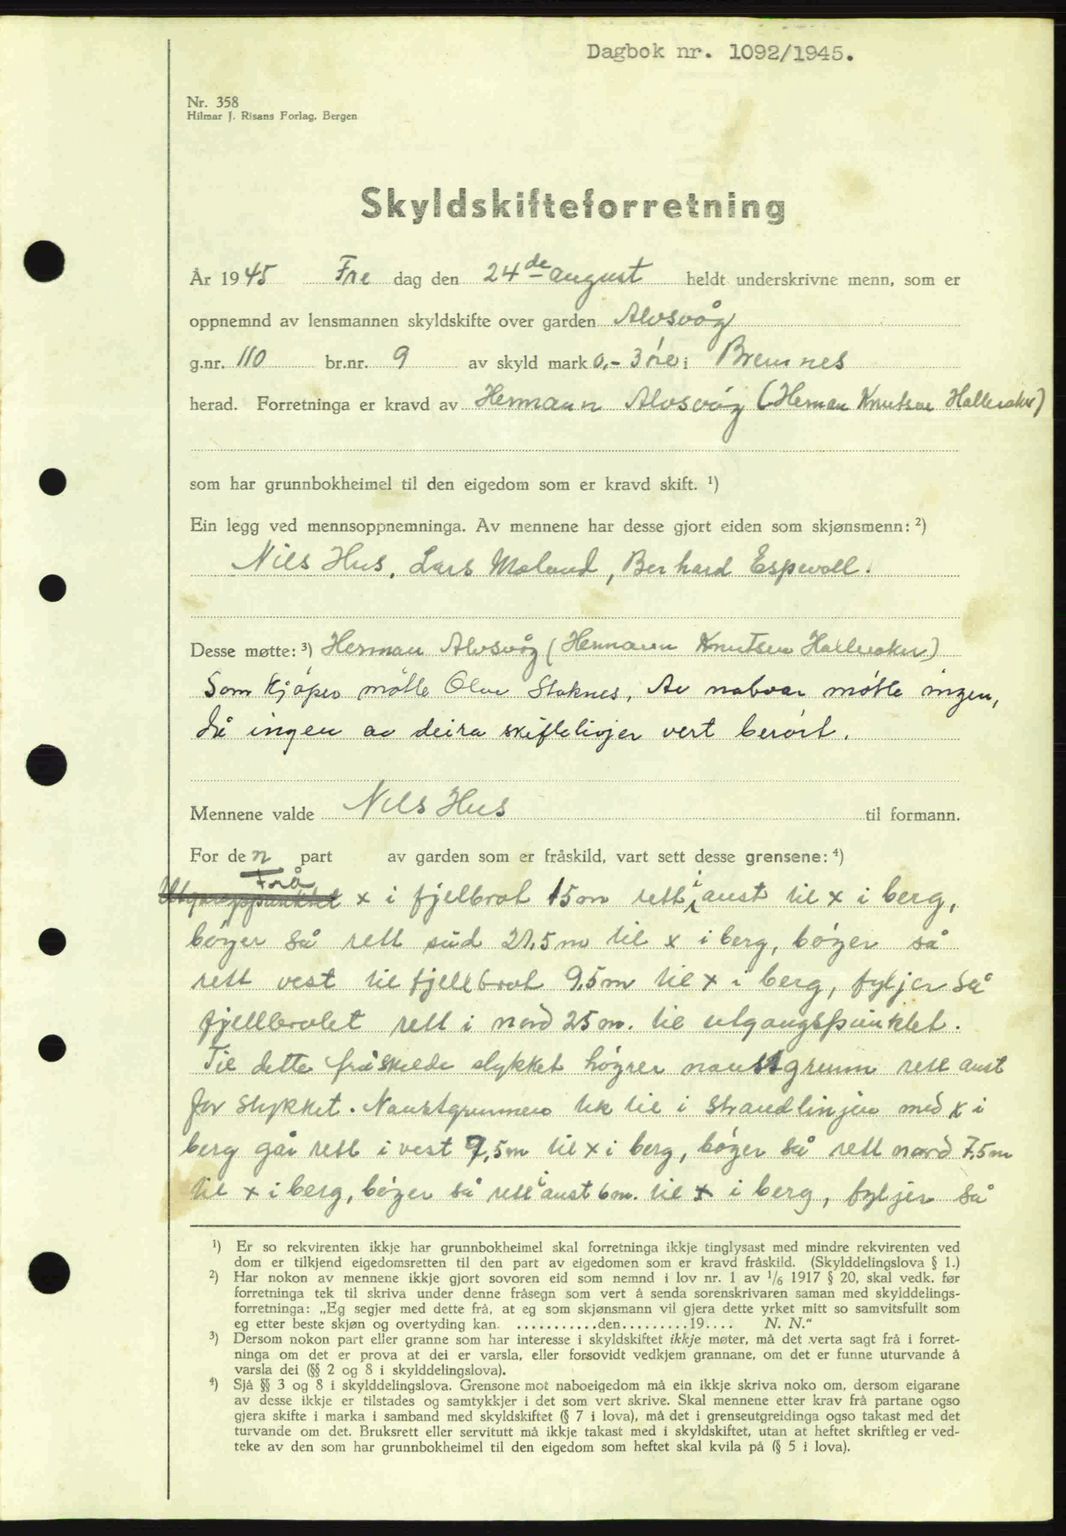 Dagbok nr. 1092/1945.
Nr. 358
Hilmar J. Risans Forlag, Bergen
Skyldskifteforretning
År 1945 Fre dag den 24de august heldt underskrivne menn, som er
oppnemnd av lensmannen skyldskifte over garden Alvsvåg
g.nr. 110 br.nr. 9 av skyld mark 0,- 3 øre i Bremnes
herad. Forretninga er kravd av Hermann Alvsvåg (Herman Knutsen Halleraker)
som har grunnbokheimel til den eigedom som er kravd skift. ¹)
Ein legg ved mennsoppnemninga. Av mennene har desse gjort eiden som skjønsmenn: ²)
Nils Hus, Lars Moland, Berhard Espevoll.
Desse møtte: ³) Herman Alvsvåg (Hermann Knutsen Halleraker)
Som kjøper møtte Olav Stoknes, Av naboar møtte ingen,
då ingen av deira skiftelinjer vert berört.
Mennene valde Nils Hus til formann.
For den part av garden som er fråskild, vart sett desse grensene: ⁴)
Utgangspunktet Frå x i fjellbrot 15m rett i aust til x i berg,
bøyer så rett sud 21,5m til x i berg, bøyer så
rett vest til fjellbrot 9,5m til x i berg, fyljer så
fjellbrotet rett i nord 25m. til utgangspunktet.
Til dette fråskilde stykket høyrer naustgrunn rett aust
for stykket. Naustgrunnen tek til i strandlinjen med x i
berg går rett i vest 7,5m til x i berg, bøyer så rett nord 7,5m
til x i berg, bøyer så rett i aust 6m. til x i berg, fyljer så
¹) Er so rekvirenten ikkje har grunnbokheimel skal forretninga ikkje tinglysast med mindre rekvirenten ved
dom er tilkjend eigedomsretten til den part av eigedomen som er kravd fråskild. (Skylddelingslova § 1.)
²) Har nokon av mennene ikkje gjort sovoren eid som nemnd i lov nr. 1 av ¹/₆ 1917 § 20, skal vedk. før
forretninga tek til skriva under denne fråsegn som vert å senda sorenskrivaren saman med skylddelings-
forretninga: „Eg segjer med dette frå, at eg som skjønsmann vil gjera dette yrket mitt so samvitsfullt som
eg etter beste skjøn og overtyding kan. ...........den.........19.... N. N.“
³) Dersom nokon part eller granne som har interesse i skyldskiftet ikkje møter, må det verta sagt frå i forret-
ninga om det er prova at dei er varsla, eller forsovidt vedkjem grannane, om det er funne uturvande å
varsla dei (§§ 2 og 8 i skylddelingslova).
⁴) Sjå §§ 3 og 8 i skylddelingslova. Grensone mot naboeigedom må ein ikkje skriva noko om, dersom eigarane
av desse ikkje er tilstades og samtykkjer i det som vert skrive. Skal mennene etter krav frå partane ogso
gjera skifte i marka i samband med skyldskiftet (§ 7 i lova), må det i grenseutgreidinga ogso takast med det
turvande om det. Bruksrett eller servitutt må ikkje takast med i skyldskiftet, utan at heftet skriftleg er ved-
teke av den som har grunnbokheimel til den eigedom som heftet skal kvila på (§ 5 i lova).